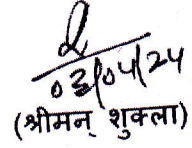 03/04/24
(श्रीमन् शुक्ला)